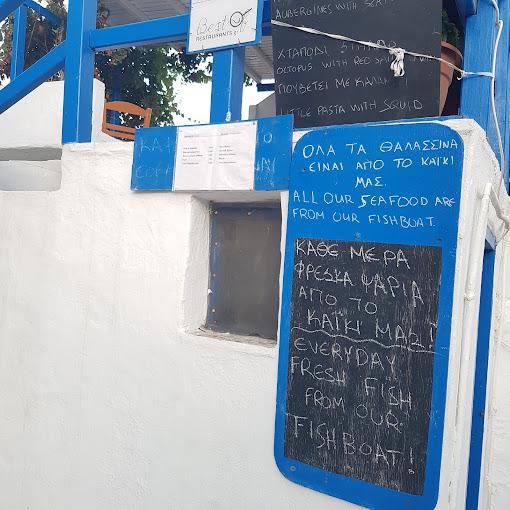 Best
RESTAURANTS.gr
AUBERGINES WITH
ΧΤΑΠΟΔΙ
OCTOPUS WITH RED
ΓΙΟΥΒΕΤΣΙ ΜΕ ΚΑΛΑΜ
LITTLE PASTA WITH SQUID
ΟΛΑ ΤΑ ΘΑΛΑΣΣΙΝΑ
ΕΙΝΑΙ ΑΠΟ ΤΟ ΚΑΪΚΙ
ΜΑΣ.
ALL OUR SEAFOOD ARE
FROM OUR FISHBOAT.
ΚΑΘΕ ΜΕΡΑ
ΦΡΕΣΚΑ ΨΑΡΙΑ
ΑΠΟ ΤΟ
ΚΑΪΚΙ ΜΑΣ!
EVERYDAY
FRESH FISH
FROM OUR
FISHBOAT!